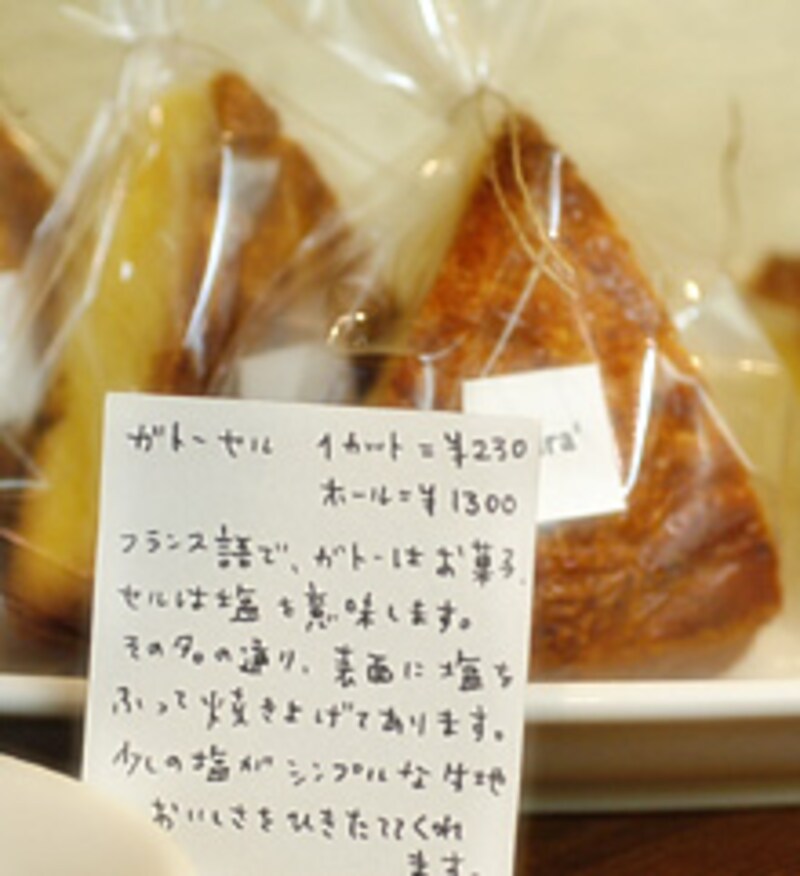 ガトーセル 1カット=¥230
ホール=¥1300
フランス語で、ガトーはお菓子、
セルは塩を意味します。
その名の通り、表面に塩を
ふって焼きよげてあります。
少しの塩がシンプルな生地
おいしさをひきたててくれ
ます。
ra'